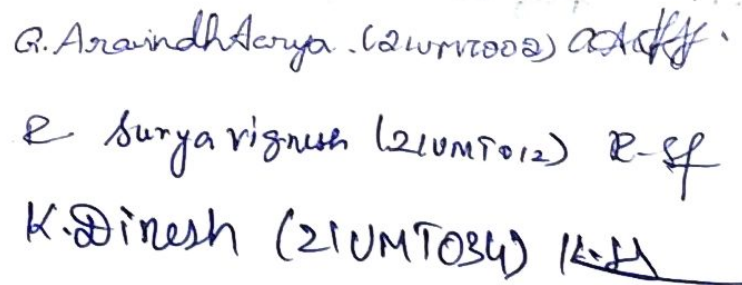 G. Aravindh Aarya. (21UMT002)
R Suryavignesh (21UMT012)
K. Dinesh (21UMT034)